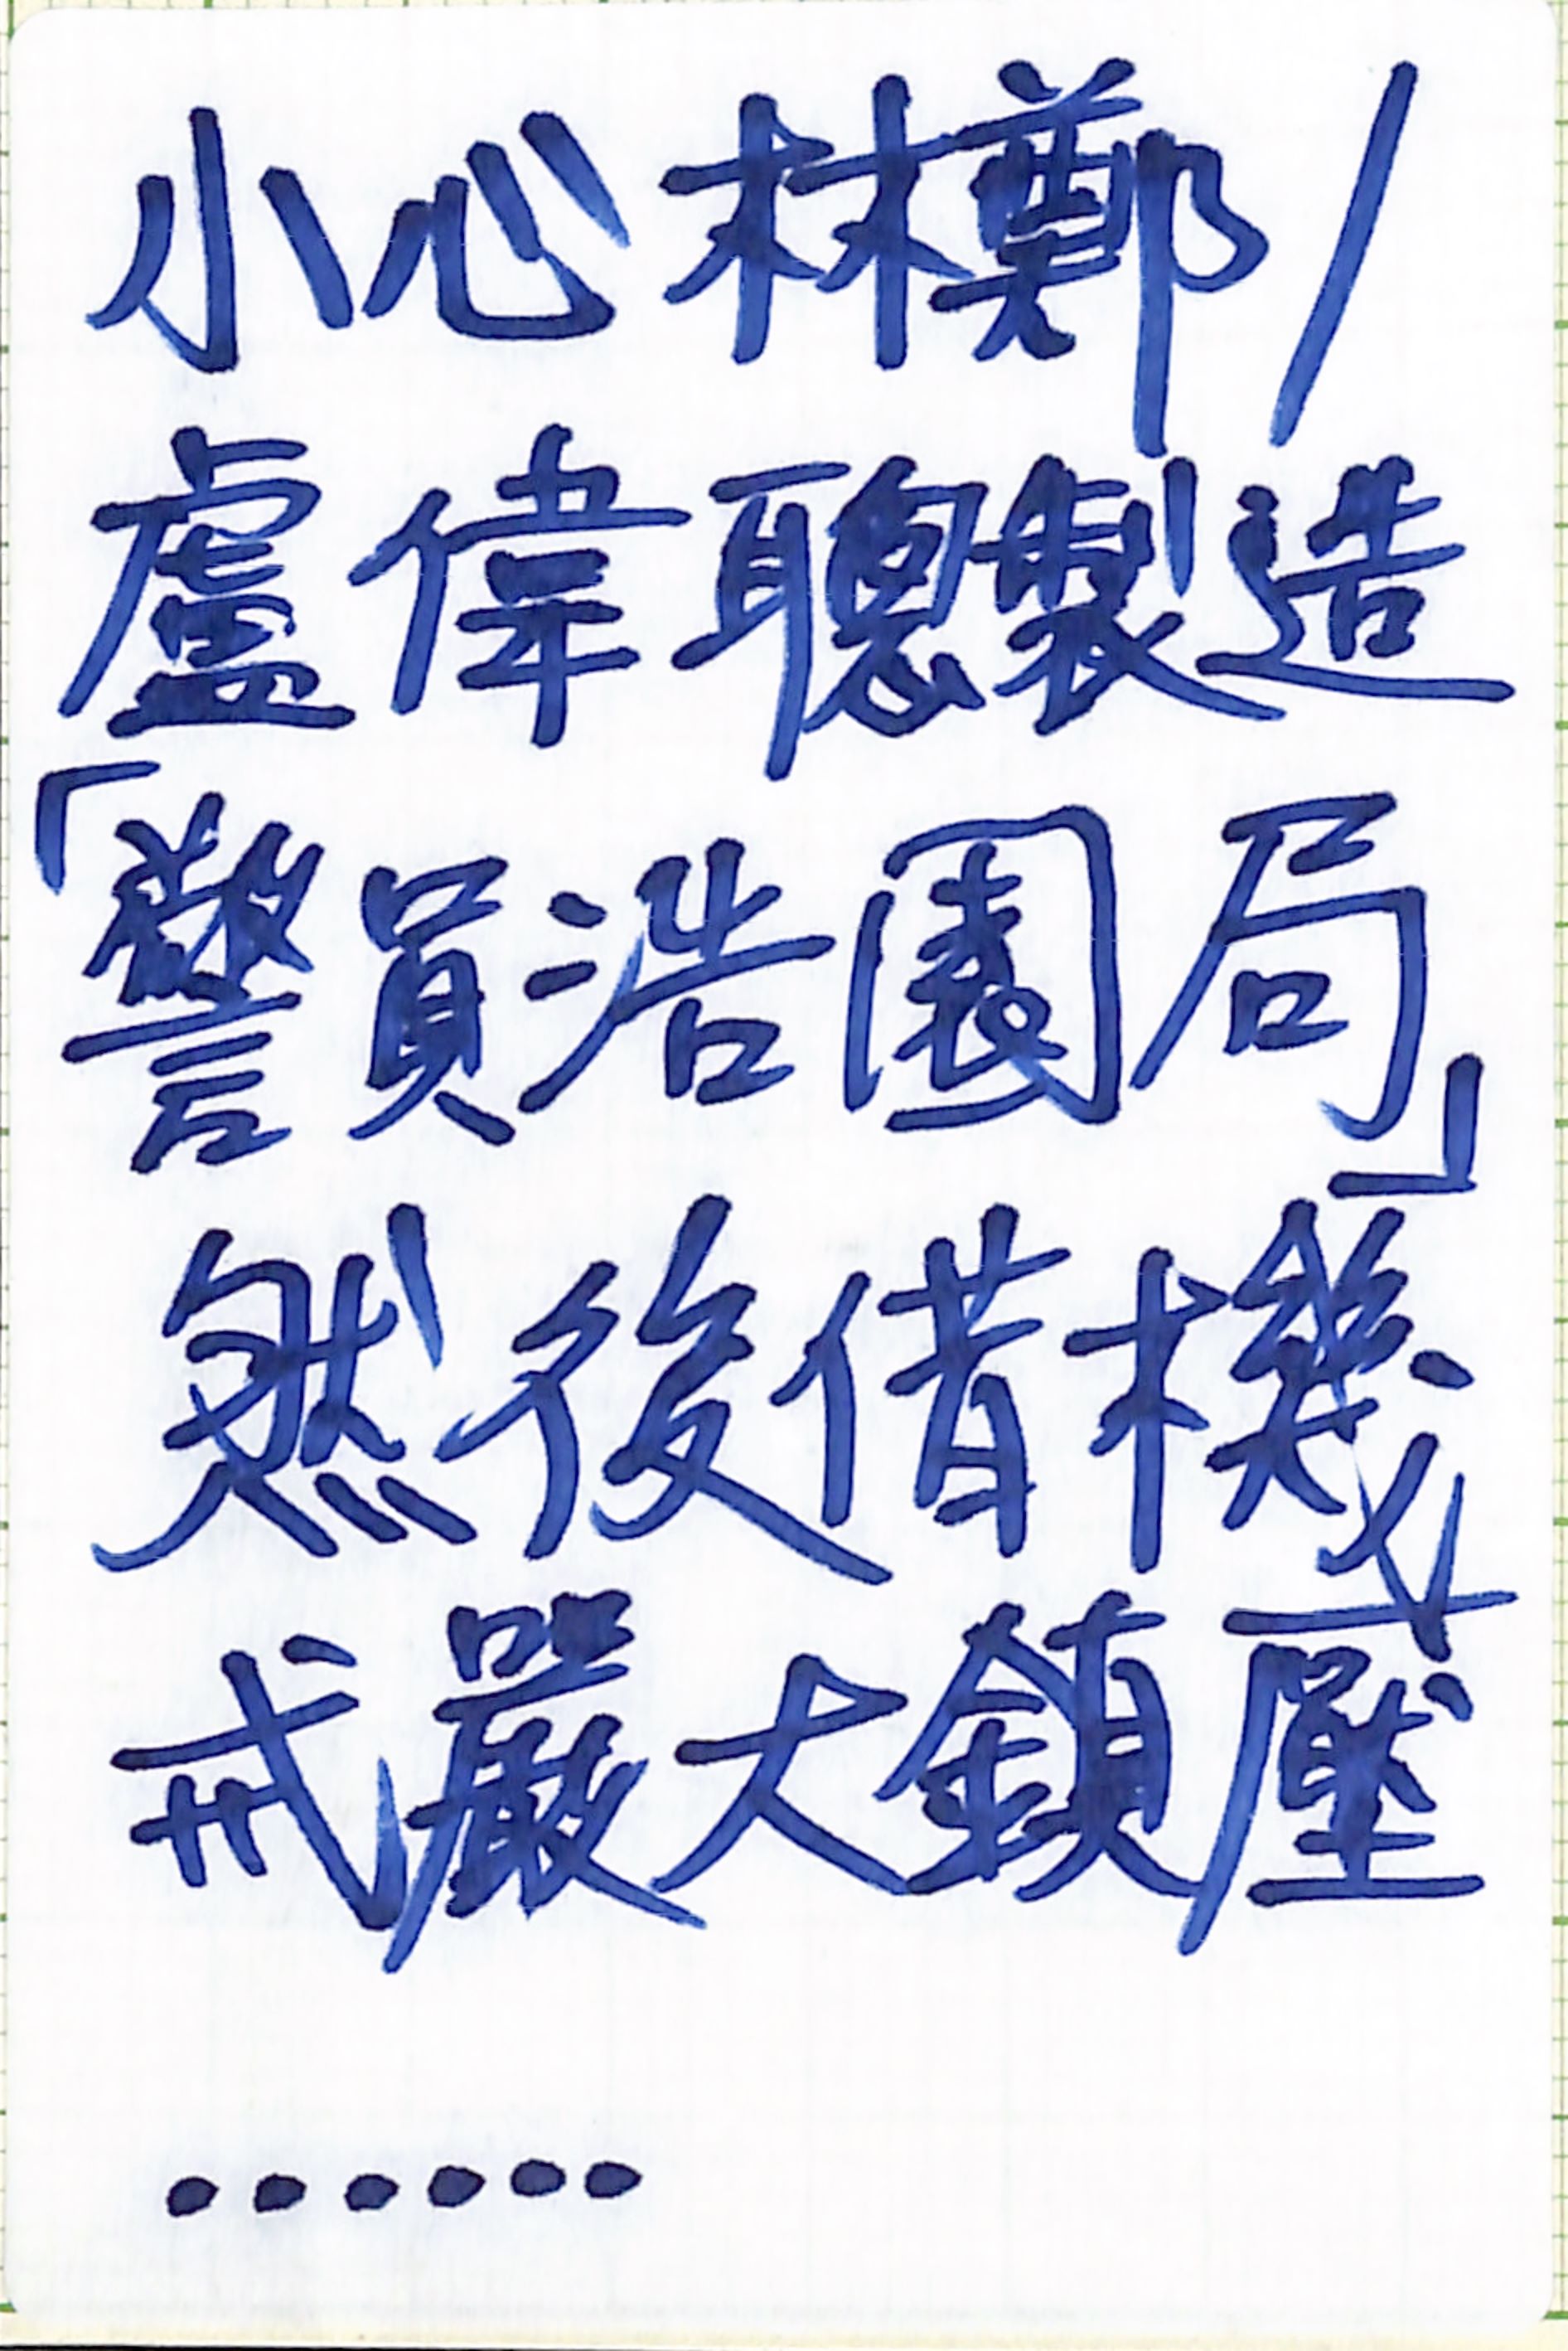 小心林鄭/
盧偉聰製造
「警員浩園局」
然後借機
戒嚴大鎮壓
……